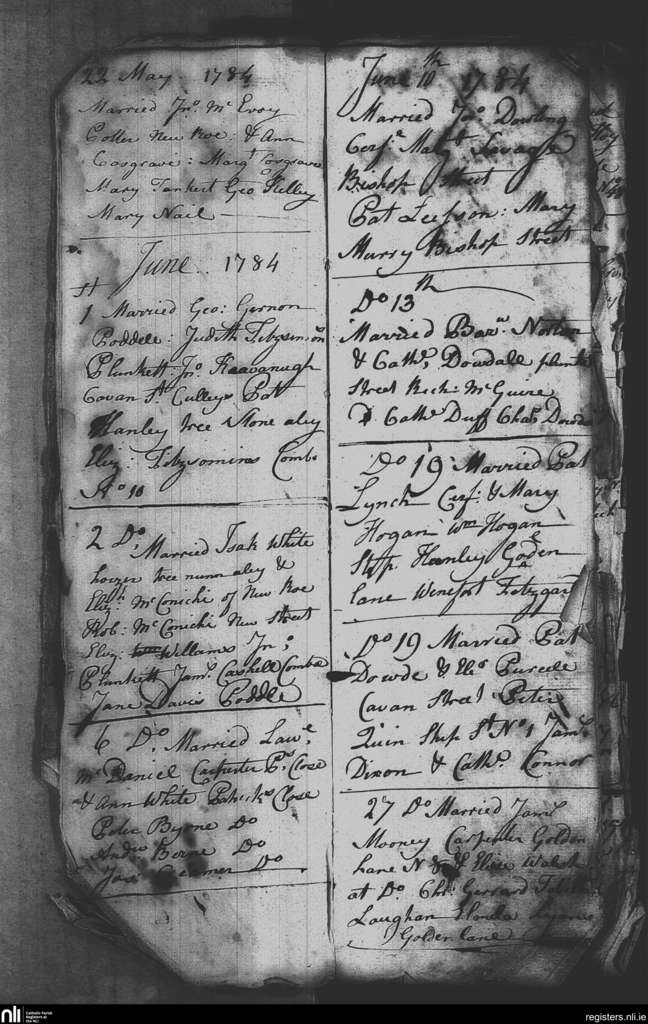 22 May 1784
Married Jno. Mc Evoy
Cotter New Roe: & Ann
Cosgrave: Margt Cosgrave
Mary Tankert Geo Kelley
Mary Nail
June. 1784
1 Married Geo: Gernon
Poddele: Judith Fitzsimon
Plunkett Jno. Keavanugh
Cavan St. Culleys Pat
Hanley tree Stone aley
Eliz: Fitzsomines Combe
No 10
2 Do. Married Isak White
hoizer tree nunn aley &
Eliz: McConichi of New Roe
Rob: McConichi New Street
Eliz: Williams Jno:
Plunkett Jams. Caskell Combe
Jane Davis Poddle
6 Do. Married Law:
Mc Daniel Carpester Ps. Close
& Ann White Patricks Close
Peter Byrne Do
Andw. Berne Do
Do
June 10th 1784
Married Jno. Dowling
Cerfr Mary Savage
Bishop Street
Pat Leepson: Mary
Marry Bishop Street
Do 13th
Married Barw. Norton
& Cath. Dowdall plunket
Street Rich: McGuire
& Cath. Duff Chas. Dowda
Do 19 Married Pat
Lynch Cerf: & Mary
Hogan Wm Hogan
Ship Hanley Golden
lane Winefort Fitzgard
Do 19 Married Pat
Dowde & Els Purcele
Cavan Street Peter
Quin Ship St No 1 Jams.
Dixon & Cath. Connor
27 Do Married Jams
Mooney Carpenter Golden
Lane N & Elize Walsh
at Do. Chr: Gerrard
Laughan
Golden lane
nli
Catholic Parish
Registers at
the NLI
registers.nli.ie